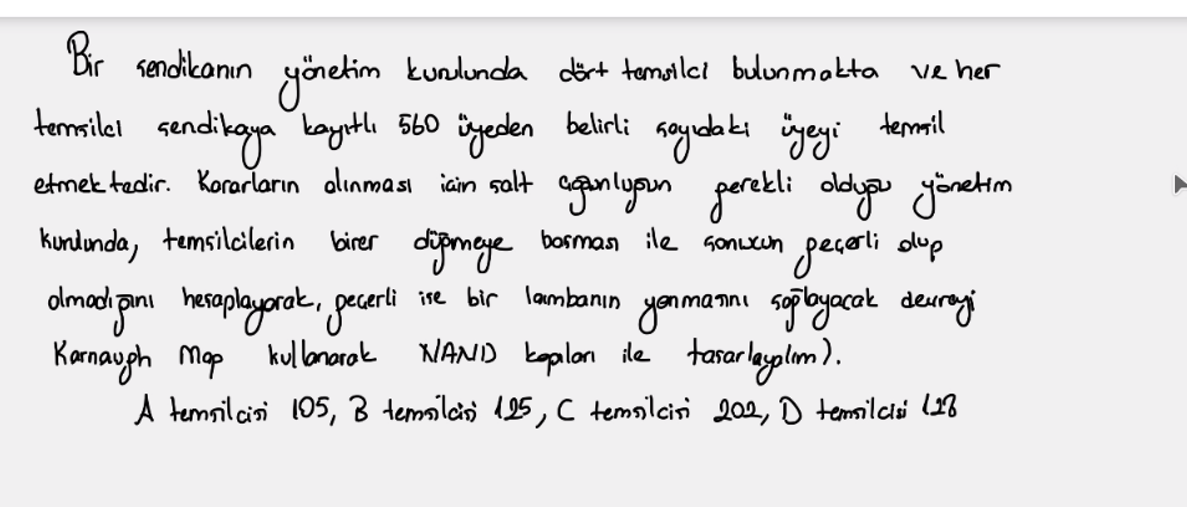 Bir sendikanın yönetim kurulunda dört temsilci bulunmakta ve her
temsilci sendikaya kayıtlı 560 üyeden belirli sayıdaki üyeyi temsil
etmektedir. Kararların alınması için salt çoğunluğun gerekli olduğu yönetim
kurulunda, temsilcilerin birer düğmeye basması ile sonucun geçerli olup
olmadığını hesaplayarak, geçerli ise bir lambanın yanmasını sağlayacak devreyi
Karnaugh Map kullanarak NAND kapıları ile tasarlayalım).
A temsilcisi 105, B temsilcisi 125, C temsilcisi 202, D temsilcisi 128